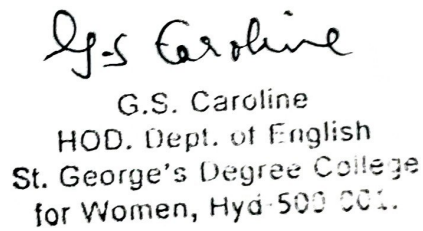 G.S Caroline
G.S. Caroline
HOD. Dept. of English
St. George's Degree College
for Women, Hyd-500 001.